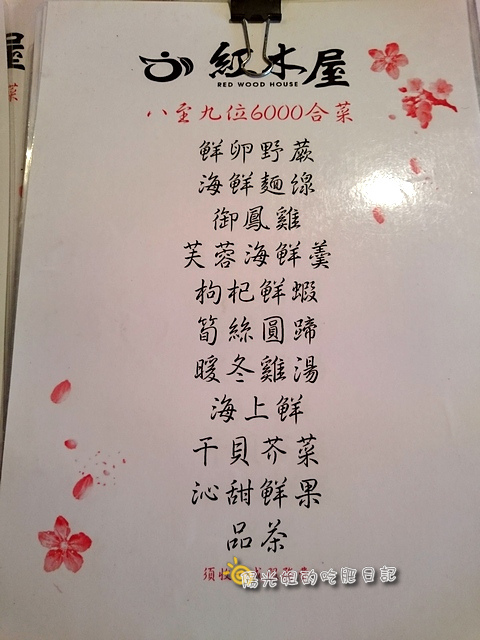 紅木屋
RED WOOD HOUSE
八至九位6000合菜
鮮卵野蕨
海鮮麵線
御鳳雞
芙蓉海鮮羹
枸杞鮮蝦
筍絲圓蹄
暖冬雞湯
海上鮮
干貝芥菜
沁甜鮮果
品茶
須收
陽光姐的吃肥日記
屋
菜